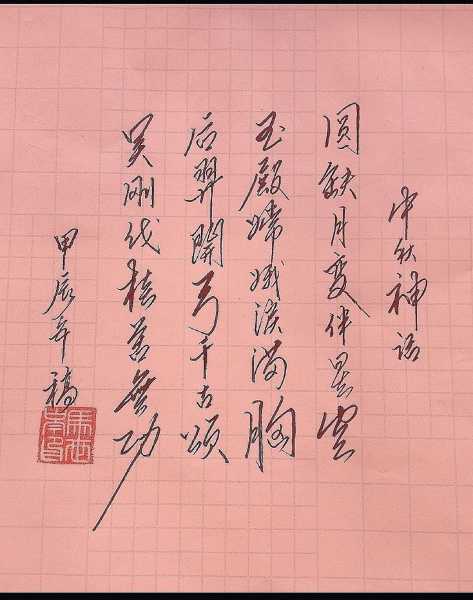 中秋神话
圆缺月变伴空
玉殿嫦娥淚满胸
后羿開弓千古颂
吴刚伐桂無功
甲辰年稿